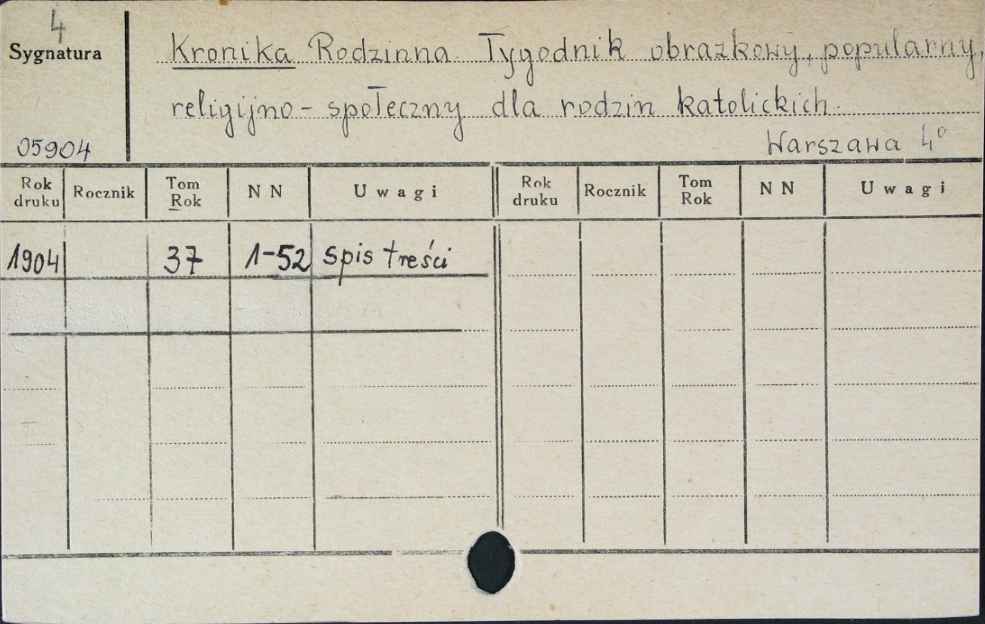 4
Sygnatura
Kronika Rodzinna. Tygodnik obrazkowy, popularny,
religijno-społeczny dla rodzin katolickich.
05904
Warszawa 4°
Rok druku Rocznik Tom Rok N N Uwagi Rok druku Rocznik Tom Rok N N Uwagi
1904 37 1-52 spis treści